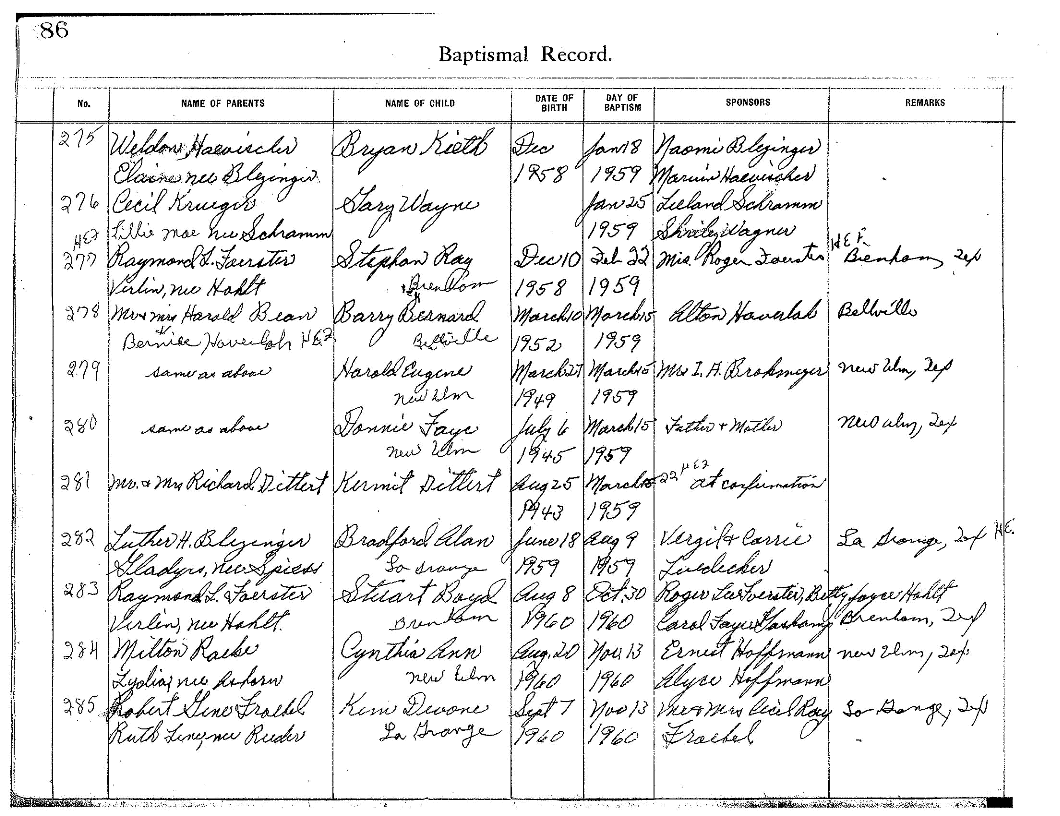 86
Baptismal Record.
No. NAME OF PARENTS NAME OF CHILD DATE OF BIRTH DAY OF BAPTISM SPONSORS REMARKS
275 Weldon Haevischer Bryan Kieth Dec Jan 18 Naomi Blezinger
Elaine nee Blezinger 1958 1959 Marvin Haevischer
276 Cecil Krueger Gary Wayne Jan 25 Leeland Schramm
Lillie Mae nee Schramm 1959 Wagner
277 Raymond L. Foerster Stephan Ray Dec 10 Feb 22 Mrs. Roger Foerster Brenham, Tex
Virlin, nee Hohlt Brenham 1958 1959
278 Mr & Mrs Harold Bean Barry Bernard March 10 March 15 Alton Havelah Bellville
Bernice Havelah Bellville 1952 1959
279 same as above Harold Eugene March 27 March 15 Mrs I. H. Brokmeyer New Ulm, Tex
New Ulm 1949 1959
280 same as above Donnie Faye July 6 March 15 Father & Mother New Ulm, Tex
New Ulm 1945 1959
281 Mr. & Mrs Richard Dittert Kermit Dittert Aug 25 March 22 at confirmation
1943 1959
282 Luther H. Blezinger Bradford Alan June 18 Aug 9 Vergil & Carrie La Grange, Tex
Gladyrs, nee Spiess La Grange 1959 1959 Luedecker
283 Raymond L. Foerster Stuart Boyd Aug 8 Oct. 30 Roger Lee Foerster, Betty Joyce Hohlt
Virlin, nee Hohlt. Brenham 1960 1960 Carol Faye Brenham, Tex
284 Milton Raeke Cynthia Ann Aug. 20 Nov. 13 Ernest Hoffmann New Ulm, Tex
Lydia, nee New Ulm 1960 1960 Alyce Hoffmann
285 Robert Gene Froebel Kim Devone Sept 7 Nov 13 Mr & Mrs Cecil Ray La Grange, Tex
Ruth Lene, nee Rueder La Grange 1960 1960 Froebel